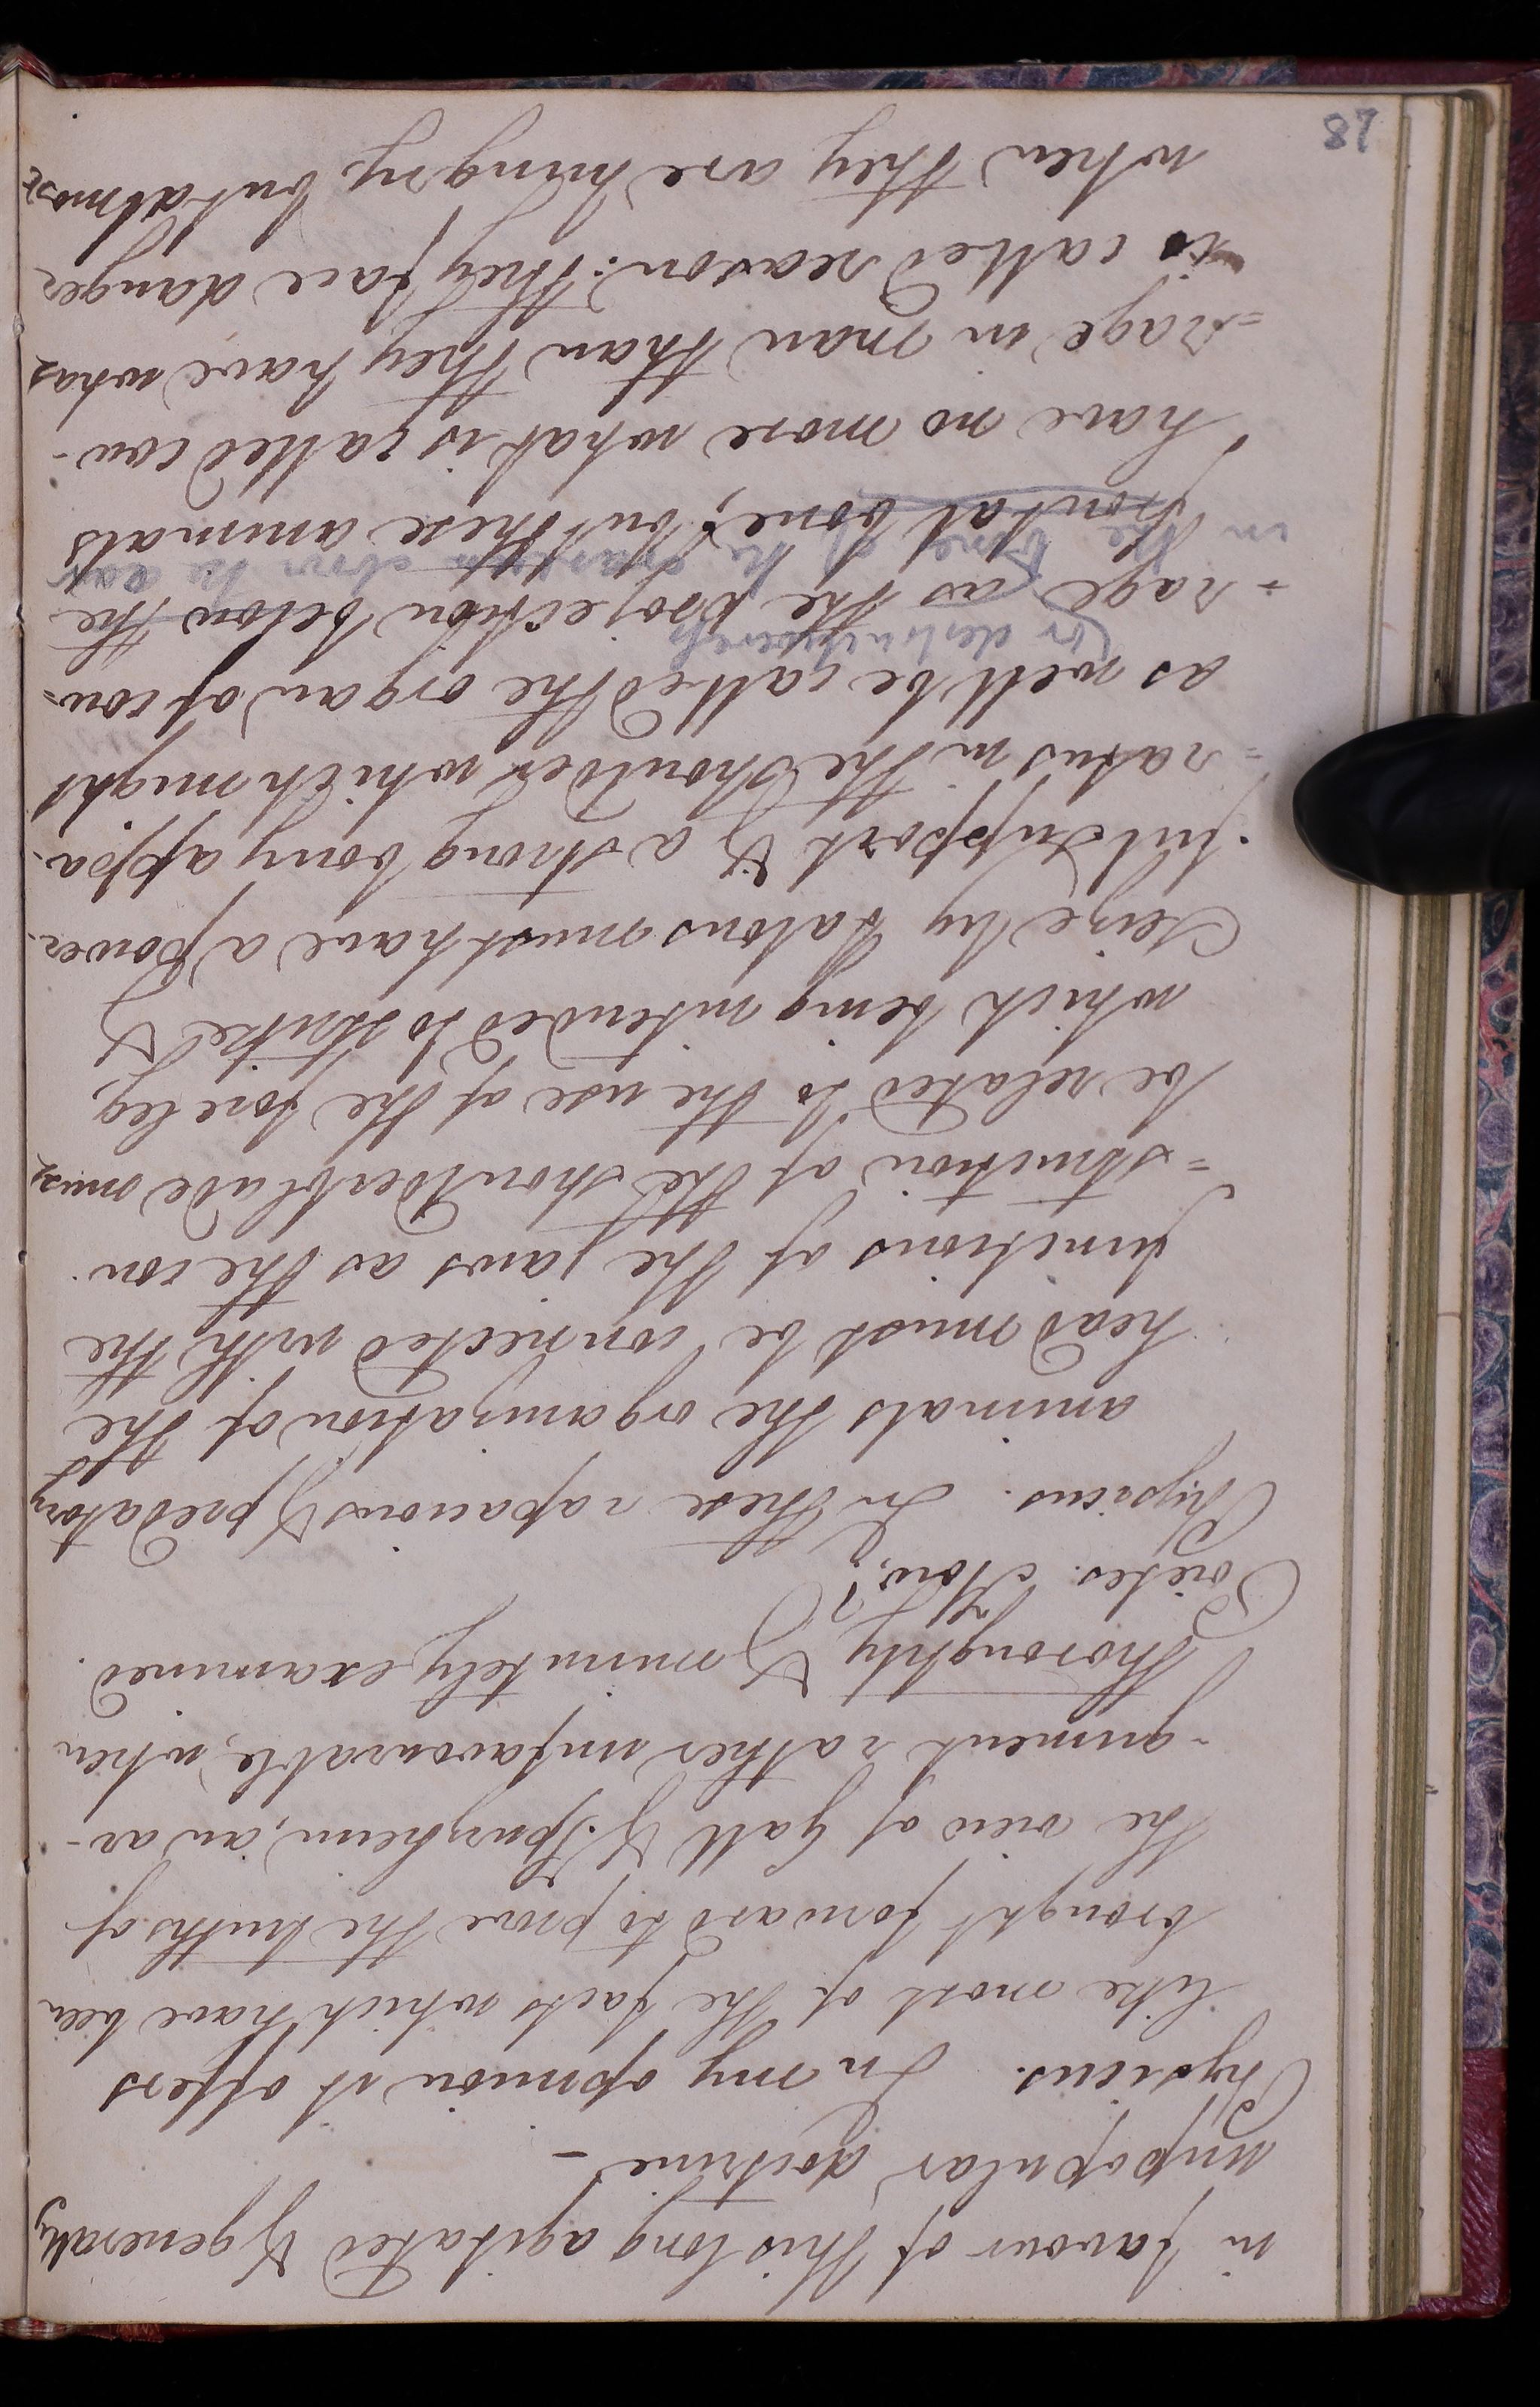 in favour of this long agitated & generally
unpopular doctrine –
Physicus. In my opinion it offers
like most of the facts which have been
brought forward to prove the truths of
the view of Gall & Spurzheim, an ar-
-gument rather unfavourable, when
thoroughly & minutely examined.
Poietes. How?
Physicus. In these rapacious & predatory
animals the organization of the
head must be connected with the
functions of the jaws as the con-
=struction of the shoulderblade must
be related to the use of the fore leg,
which being intended to strike &
seize by talons must have a power-
-ful support & a strong bony appa-
=ratus in the shoulder which might
as well be called the organ of cou=
(or destructiveness
=rage as the projection below the
in the bone of the cranium above the ear
frontal bone; but these animals
have no more what is called cou-
=rage in man than they have what
is called reason: they face danger
when they are hungry, but almost
87